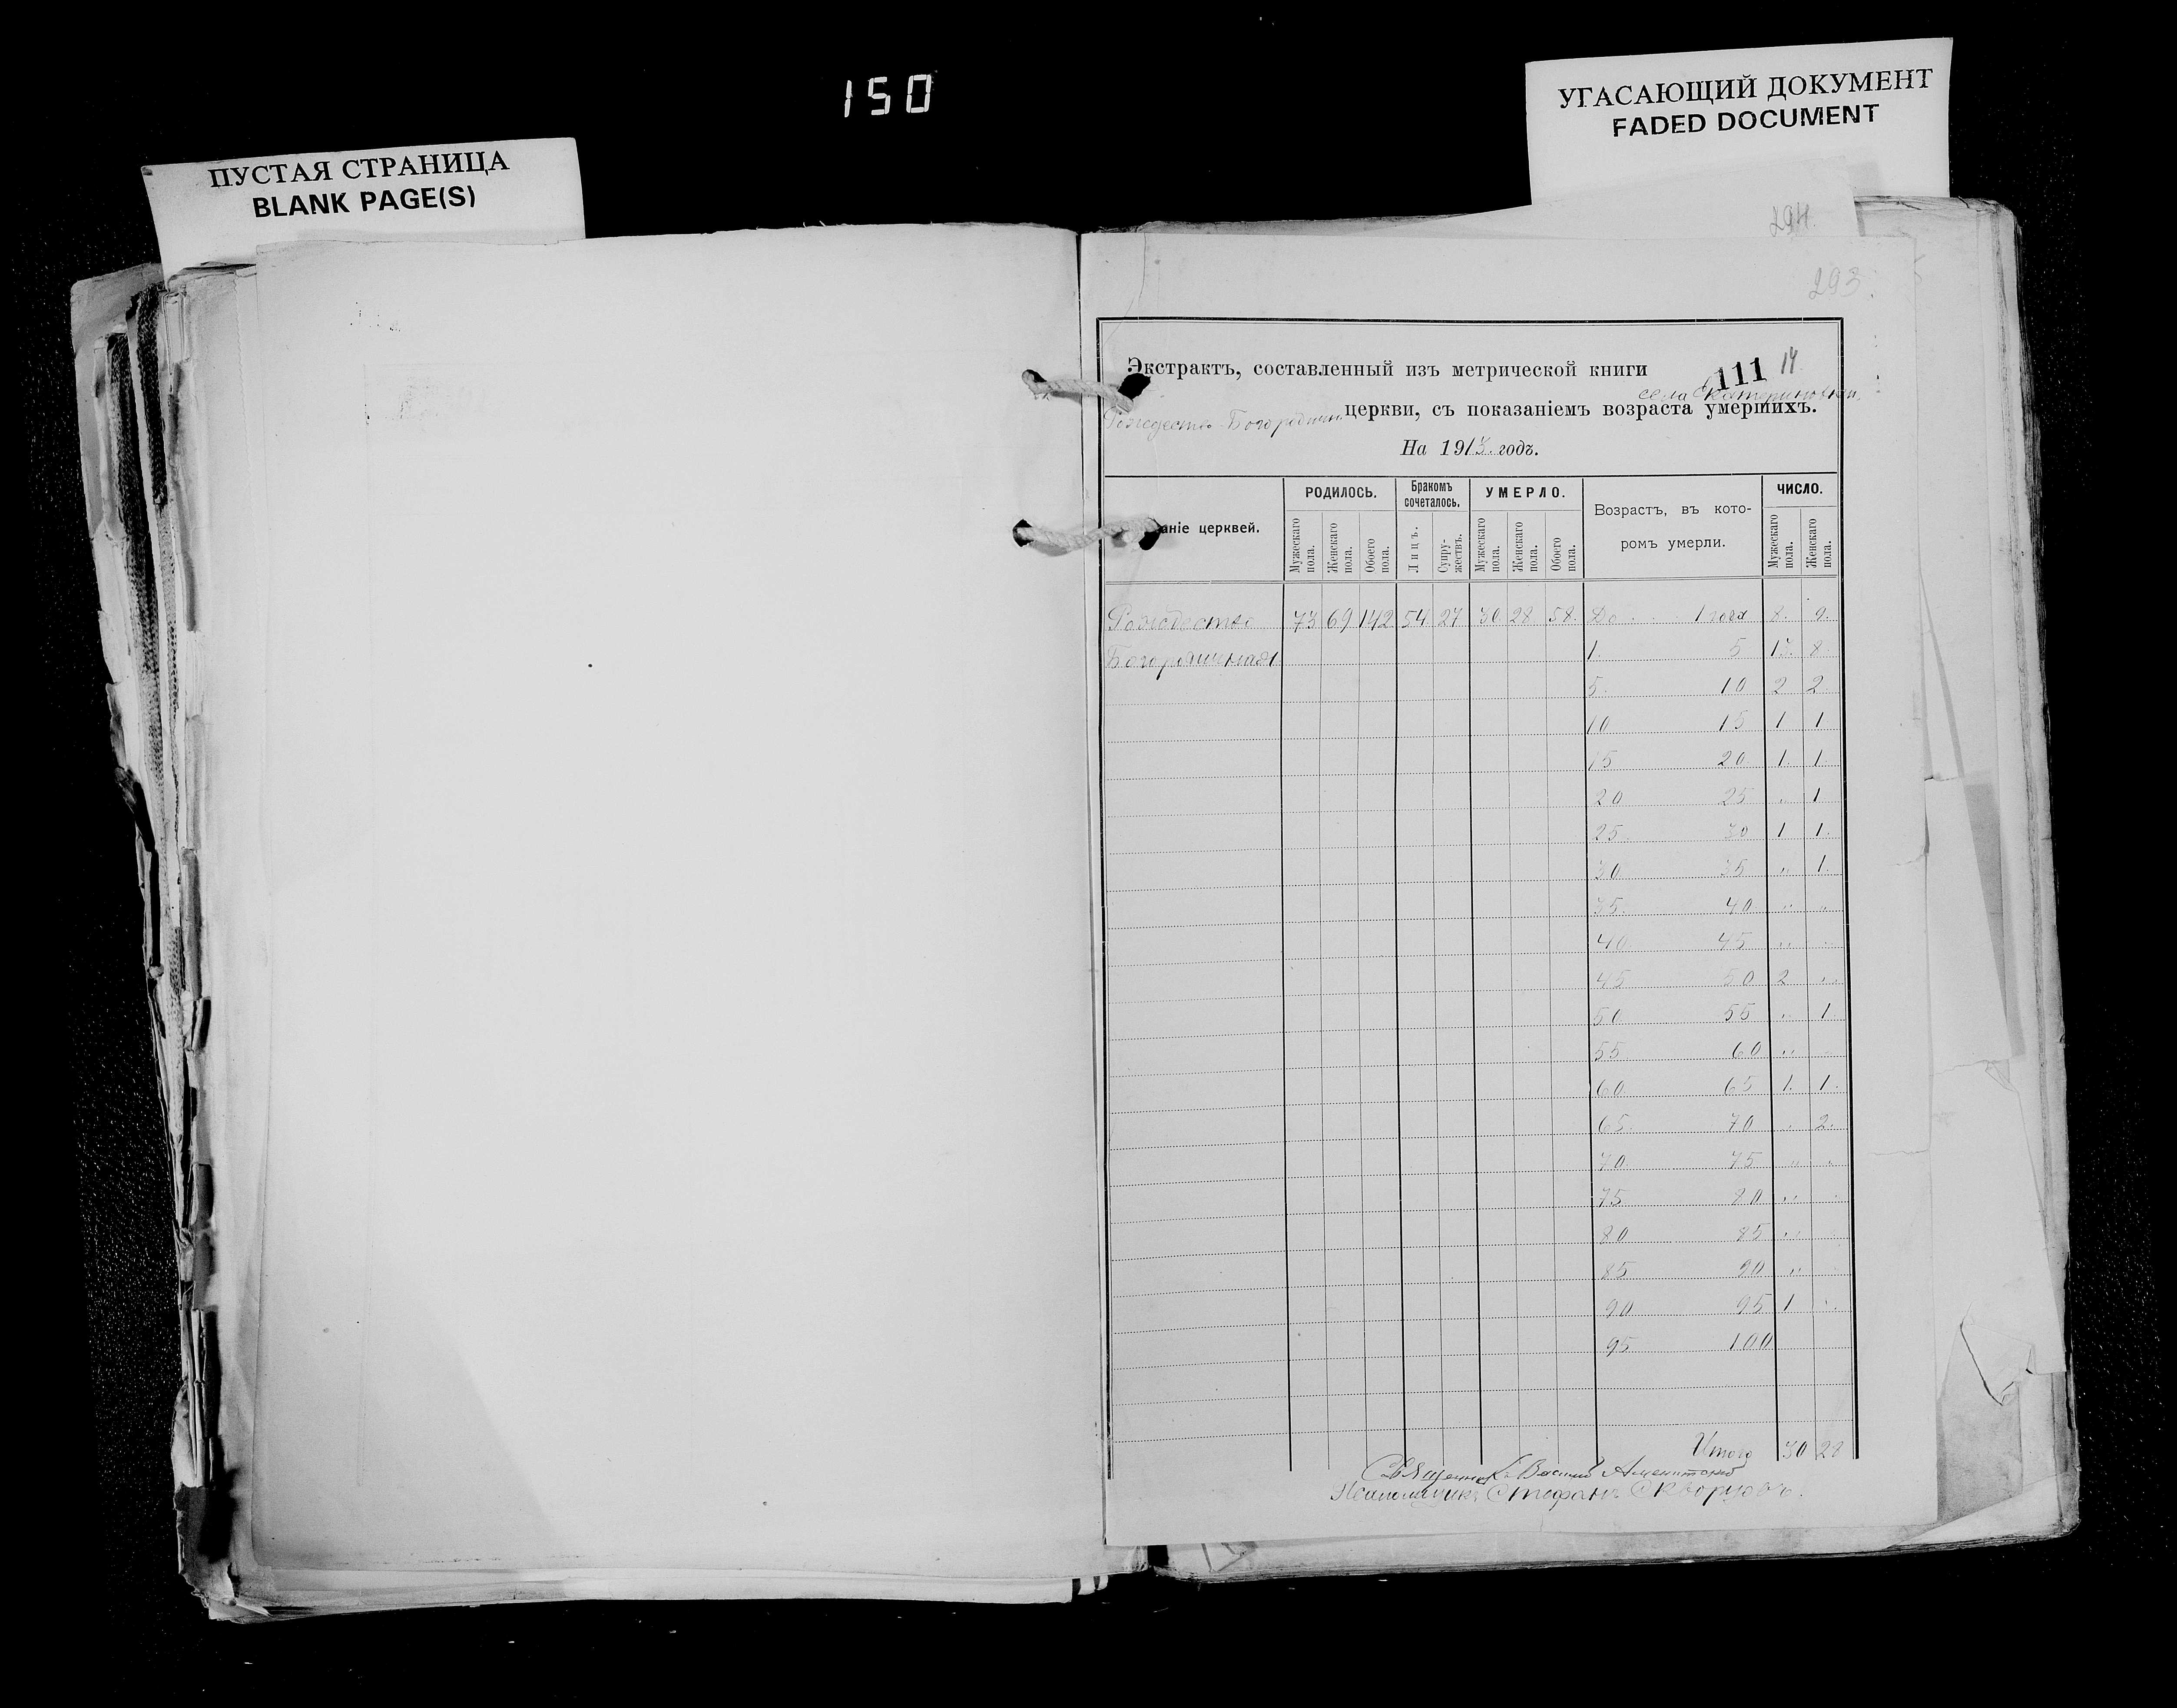 150
ПУСТАЯ СТРАНИЦА
BLANK PAGE(S)
УГАСАЮЩИЙ ДОКУМЕНТ
FADED DOCUMENT
294.
293.
Экстрактъ, составленный изъ метрической книги
111 14
села Екатериновки
Рождество-Богородичн. церкви, съ показаніемъ возраста умершихъ.
На 1913. годъ.
аніе церквей.
РОДИЛОСЬ.
Бракомъ сочеталось.
УМЕРЛО.
Возрастъ, въ кото-
ромъ умерли.
ЧИСЛО.
Мужескаго пола.
Женскаго пола.
Обоего пола.
Лицъ.
Супру-
жествъ.
Мужескаго пола.
Женскаго пола.
Обоего пола.
Мужескаго пола.
Женскаго пола.
Рождество 73 69 142 54 27 30 28 58. До 1 года 8. 9.
Богородичная 1. 5 13. 8
5. 10 2 2
10 15 1 1
15 20 1. 1.
20 25 „ 1
25 30 1 1.
30 35 „ 1.
35. 40 „ „
40 45 „ „
45 50 2 „
50 55 „ 1.
55 60 „
60 65 1. 1.
65. 70 „ 2.
70. 75 „ „
75 80 „
80 85 „
85 90 „
90 95 1 „
95 100
Итого 30 28
Священникъ Василий
Псаломщикъ Стефанъ Скворцовъ.